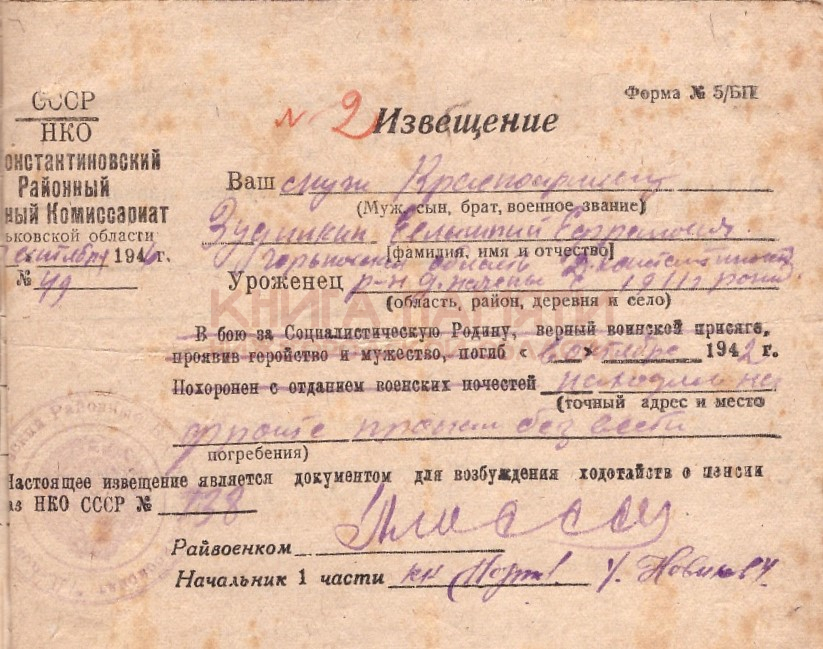 СССР
НКО
онстантиновский
Районный
ный Комиссариат
ьковской области
сентября 1946 г.
№ 49
Форма № 5/БП
№ 2 Извещение
Ваш муж Красноармеец
(Муж, сын, брат, военное звание)
[фамилия, имя и отчество]
Горьковская область Д.Константиновский
Уроженец р-н д. 1911 г рожд.
(область, район, деревня и село)
КНИГА ПАМЯТИ
В бою за Социалистическую Родину, верный воинской присяге,
проявив геройство и мужество, погиб « » октябре 1942 г.
Похоронен с отданием военских почестей находясь на
(точный адрес и место
фронте пропал без вести
погребения)
Настоящее извещение является документом для возбуждения ходотайств о пенсии
аз НКО СССР № 138
Райвоенком
Начальник 1 части Новиков